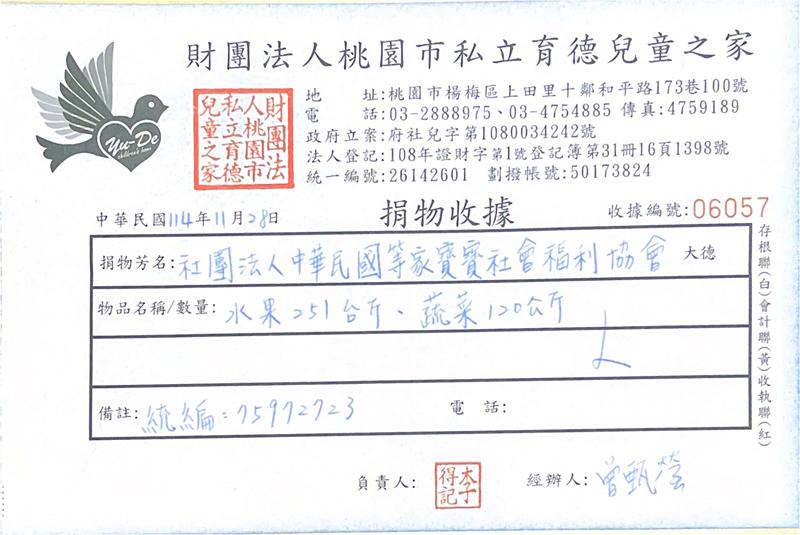 財團法人桃園市私立育德兒童之家
Yu-De
children's home
財團法人桃園市私立育德兒童之家
地 址:桃園市楊梅區上田里十鄰和平路173巷100號
電 話:03-2888975、03-4754885 傳真:4759189
政府立案:府社兒字第1080034242號
法人登記:108年證財字第1號登記簿第31冊16頁1398號
統一編號:26142601 劃撥帳號:50173824
中華民國114年11月28日
捐物收據
收據編號:06057
捐物芳名:社團法人中華民國等家寶寶社會福利協會 大德
物品名稱/數量:水果251台斤、蔬菜120公斤
備註:統編:75972723
電 話:
存根聯(白)會計聯(黃)收執聯(紅)
負責人:
經辦人:曾甄瑩